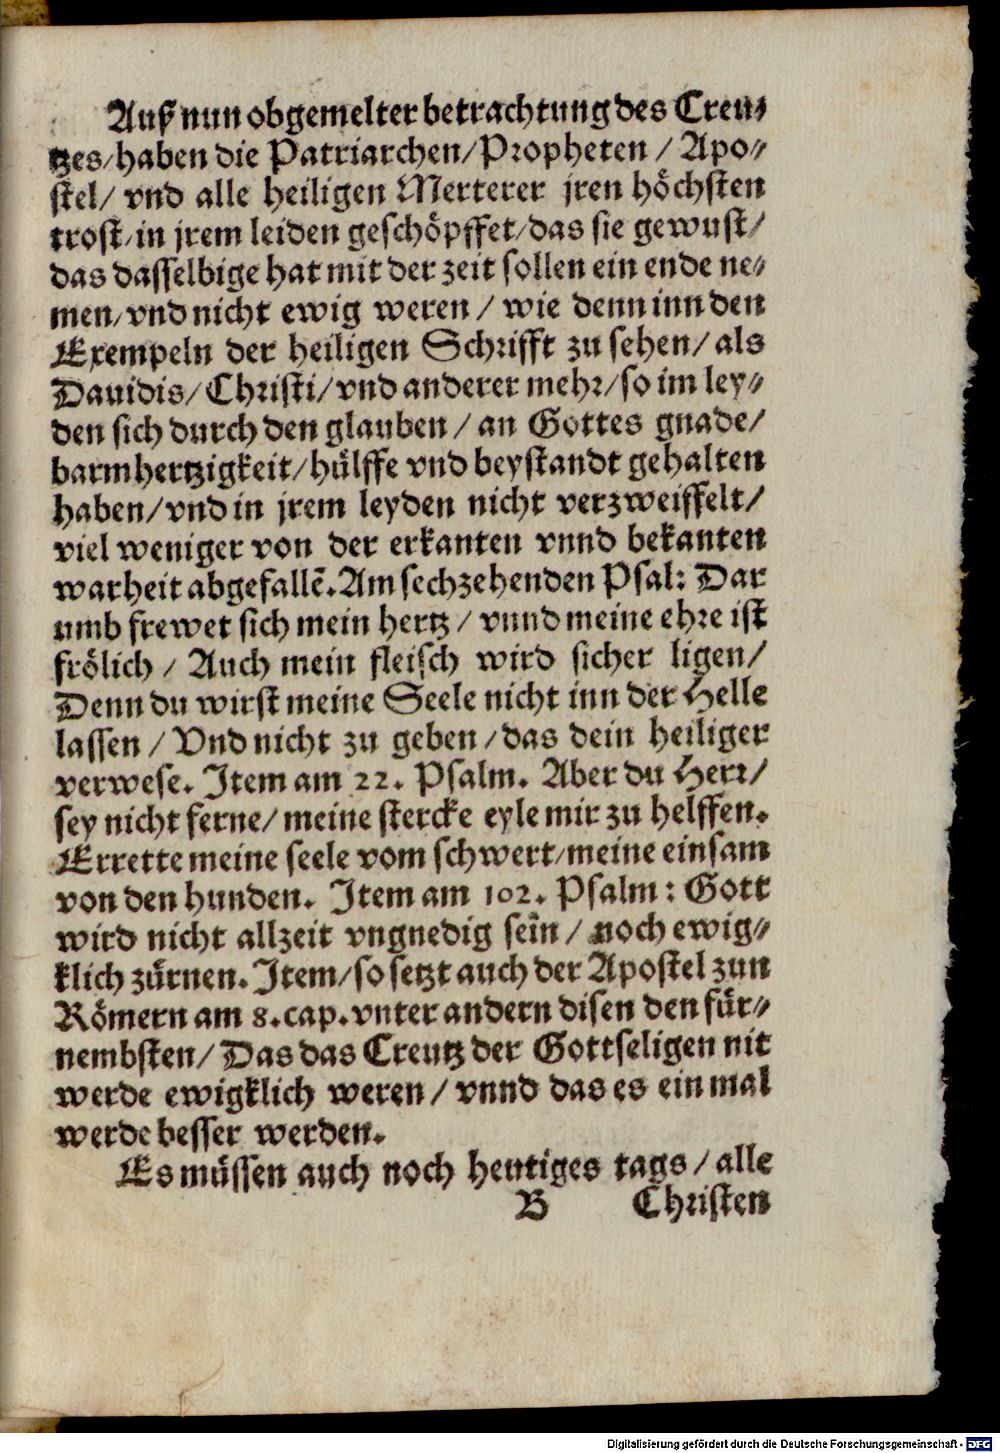 Auß nun obgemelter betrachtung des Creu⸗
tzes/haben die Patriarchen/Propheten / Apo⸗
stel/ vnd alle heiligen Merterer jren höchsten
trost/in jrem leiden geschöpffet/das sie gewust/
das dasselbige hat mit der zeit sollen ein ende ne⸗
men/vnd nicht ewig weren / wie denn inn den
Exempeln der heiligen Schrifft zu sehen/ als
Dauidis/ Christi/ vnd anderer mehr/so im ley⸗
den sich durch den glauben / an Gottes gnade/
barmhertzigkeit/hülffe vnd beystandt gehalten
haben/vnd in jrem leyden nicht verzweiffelt/
viel weniger von der erkanten vnnd bekanten
warheit abgefallē. Am sechzehenden Psal: Dar
umb frewet sich mein hertz / vnnd meine ehre ist
frölich / Auch mein fleisch wird sicher ligen/
Denn du wirst meine Seele nicht inn der Helle
lassen / Vnd nicht zu geben/das dein heiliger
verwese. Item am 22. Psalm. Aber du Herr/
sey nicht ferne/ meine stercke eyle mir zu helffen.
Errette meine seele vom schwert/meine einsam
von den hunden. Item am 102. Psalm: Gott
wird nicht allzeit vngnedig sein / noch ewig⸗
klich zürnen. Item/so setzt auch der Apostel zun
Römern am 8.cap.vnter andern disen den für⸗
nembsten/ Das das Creutz der Gottseligen nit
werde ewigklich weren/ vnnd das es ein mal
werde besser werden.
Es müssen auch noch heutiges tags / alle
B Christen
Digitalisierung gefördert durch die Deutsche Forschungsgemeinschaft - DFG